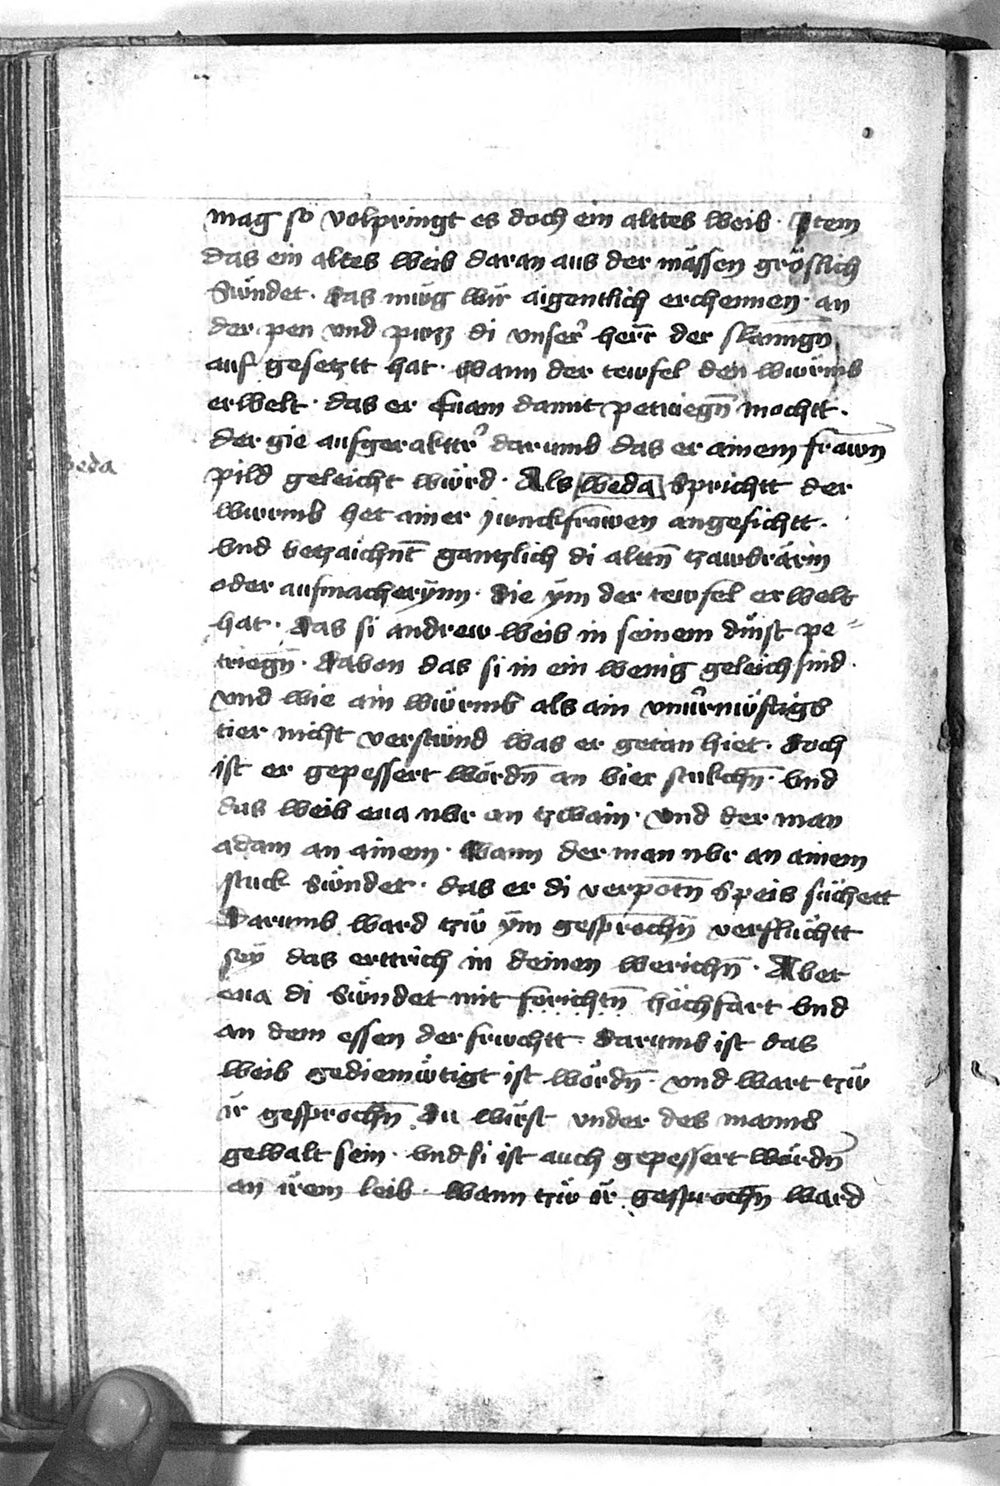 mag so volpringt es doch ein alttes weib · Jtem
das ein altes weib daran aus der mässen gröslich
Sündet · das müg wir aigentlich erchennen · an
der pen vnd puzz di vnser herr der slanngn̄
auf gesetztt hat · wann der tewfel den wurmb
erwelt · das er Euam damit petriegn̄ mochtt ·
der gie aufgerakttr darumb das er ainem frawn̄
Beda
pild geleicht würd · Als weda Sprichtt der
wurmb het ainer junckfrawen angesichtt ·
vnd betzaichnt̄ gantzlich di altn̄ tzawbrärin
oder aufmacherÿnn · die ÿm der tewfel erwelt
hat · das si andrew weib in seinem dinst pe=
triegn̄ · davon das si in ein wenig geleich sind ·
vnd wie ain würmb als ain vnuernüftigs
tier nicht verstünd was er getan hiet · doch
ist er gepessert wördn̄ an vier stukchn̄ · vnd
das weib eua nvr an tzwain · vnd der man
adam an ainem · wann der man nvr an ainem
stuck sündet · das er di verpotn̄ Speis süchett
Darumb ward tzü ÿm gesprochn̄ verflüchtt
seÿ das erttrich in deinen werichn̄ · Aber
eua di sündet mit forichtn̄ höchfart vnd
an dem essen der fruchtt · darumb ist das
weib gediemütigt ist wördn̄ · vnd wart tzü
ir gesprochn̄ Du wirst vnder des manns
gewalt sein · vnd si ist auch gepessert wördn̄
an irem leib · wann tzü ir gesprochn̄ ward